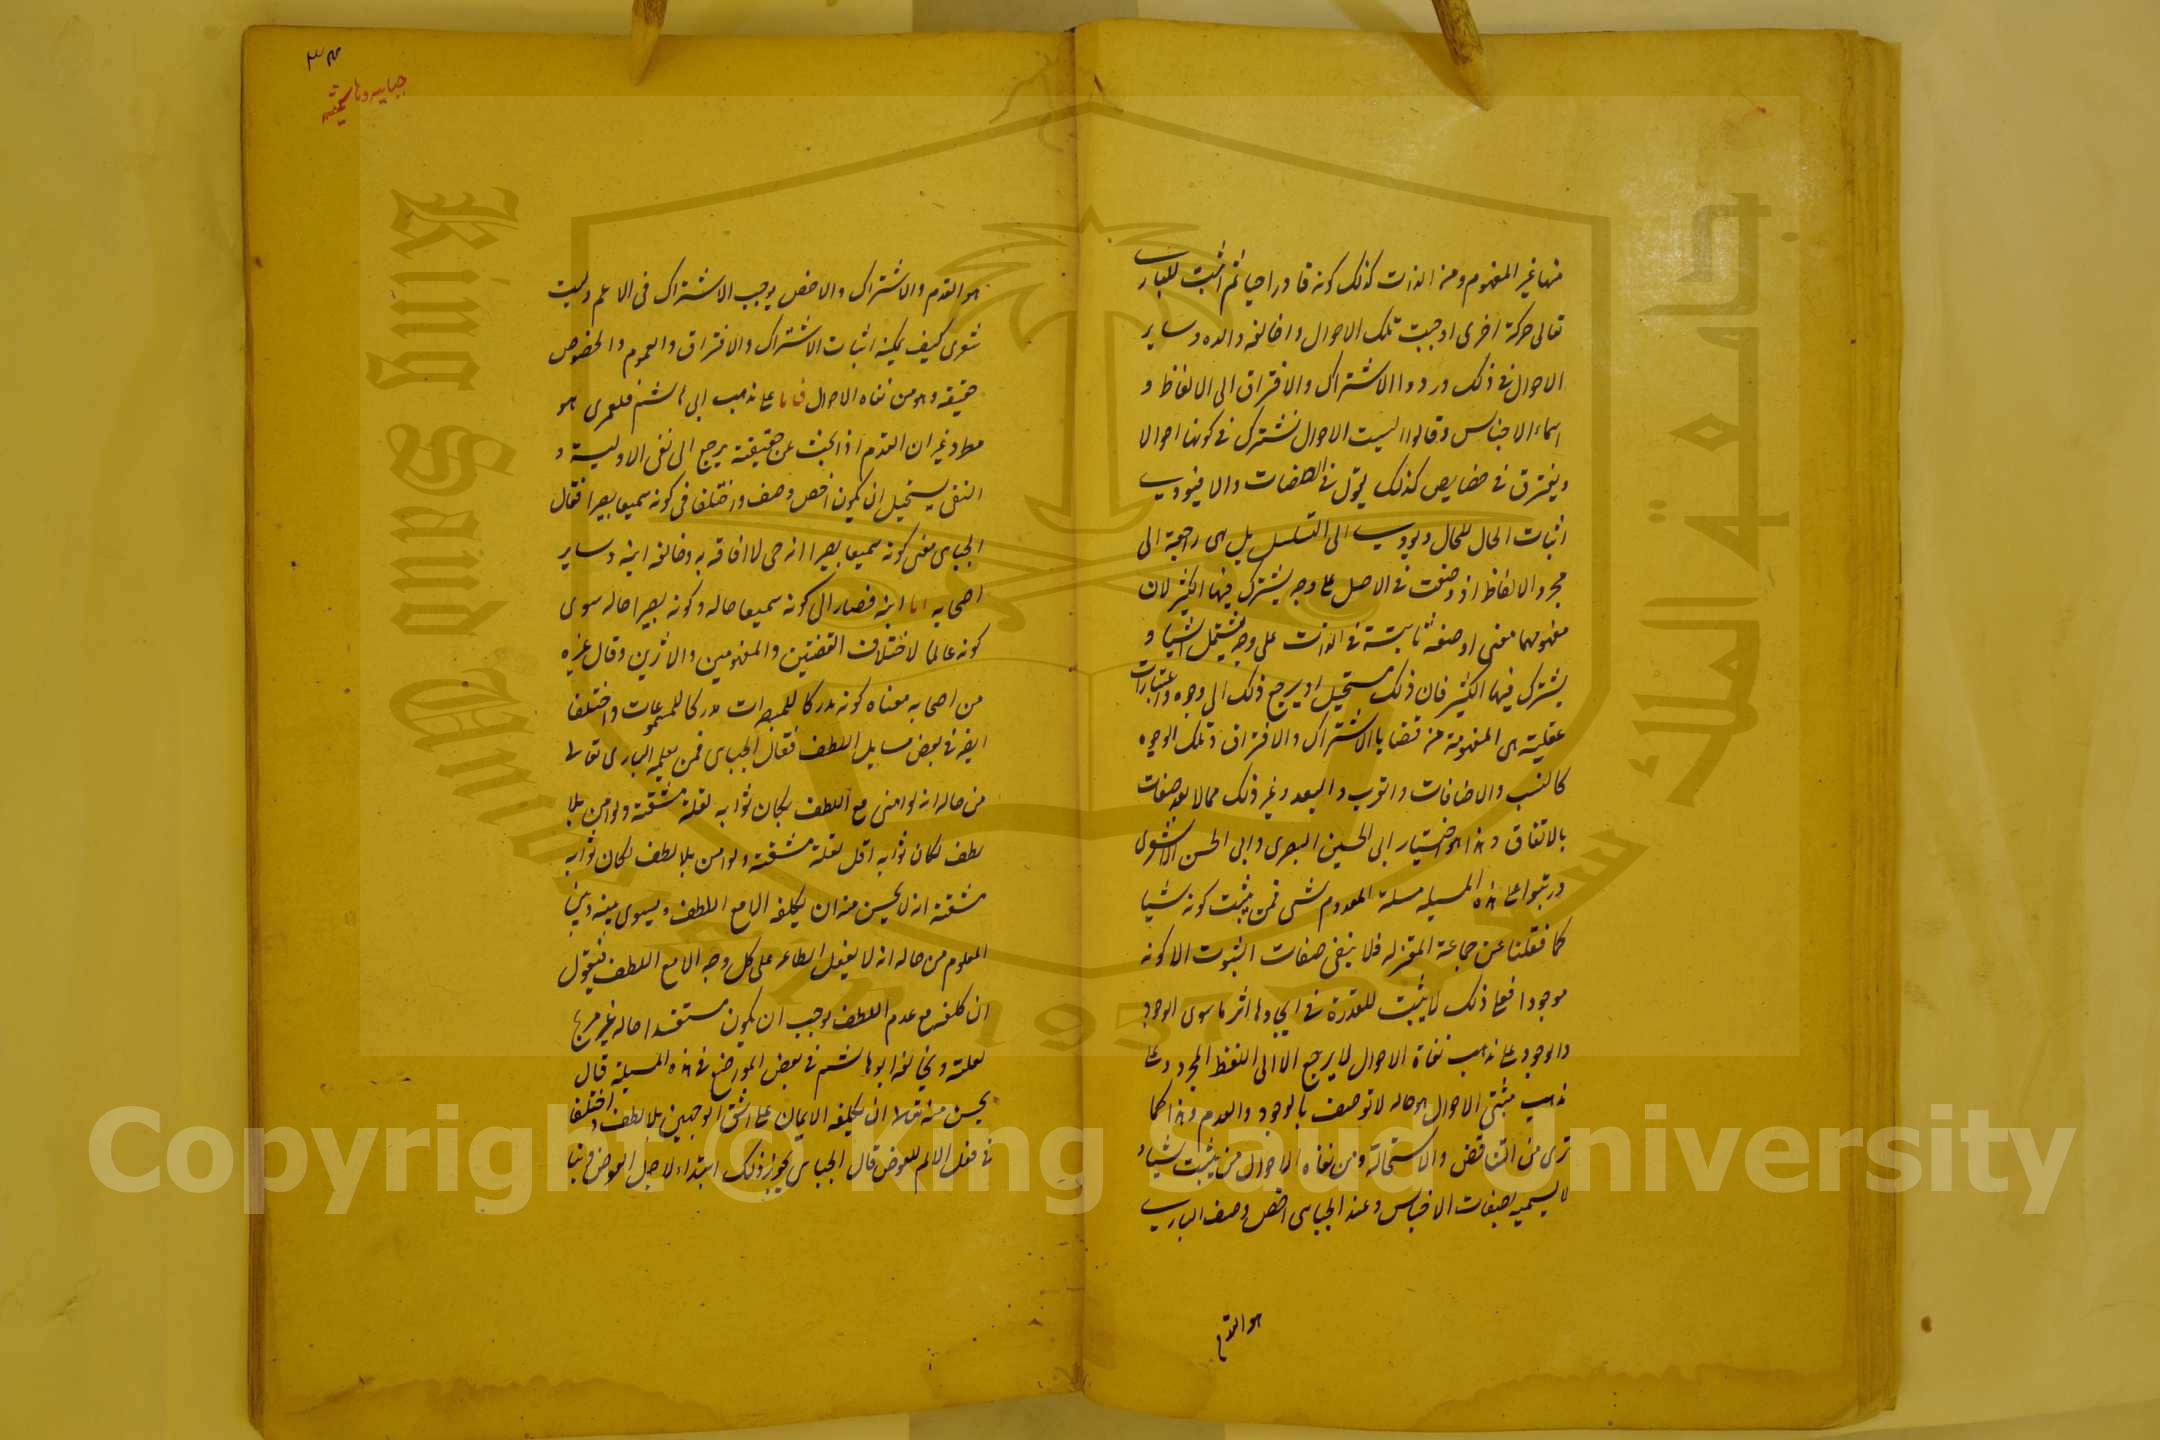 منها غير المفهوم من الذات كذلك كونه قادرا حيا ثم اثبت للباري
تعالى حركة اخرى اوجبت تلك الاحوال وخالفه والده وساير
الاحوال في ذلك وردوا الاشتراك والافتراق الى الالفاظ و
اسماء الاجناس وقالوا اليست الاحوال تشترك في كونها احوالا
ويفترق في خصايص كذلك نقول في الصفات والا فيودي
اثبات الحال للحال ويودي الى التسلسل بل هي راجعة الى
مجرد الالفاظ اذ وضعت في الاصل على وجه يشترك فيها الكثير لان
مفهومهما معنى او صفة ثابتة في الذات على وجه يشتمل اشيا و
يشترك فيها الكثير فان ذلك مستحيل او يرجع ذلك الى وجوه واعتبارات
عقلية هي المفهومة من قضايا الاشتراك والافتراق وتلك الوجوه
كالنسب والاضافات والقرب والبعد وغير ذلك مما لا يعد صفات
بالاتفاق وهذا هو اختيار ابي الحسين البصري وابي الحسن الاشعري
ورتبوا على هذه المسيله مسلة المعدوم شى فمن يثبت كونه شيا
كما نقلنا عن جماعة المعتزله فلا ينفى صفات الثبوت الا كونه
موجودا فعلى ذلك لا يثبت للقدرة في ايجادها اثر ما سوى الوجود
والوجود على مذهب نفاة الاحوال لا يرجع الا الى اللفظ المجرد وعلى
مذهب مثبتي الاحوال هو حاله لا توصف بالوجود والعدم وهذا كما
ترى من التناقض والاستحالة ومن نفاه الاحوال من يثبت شيا و
لا يسميه بصفات الاجناس وعند الجبائى اخص وصف الباري
هو القدم
٣٤
جبايه وهاشميه
هو القدم والاشتراك والاخص يوجب الاشتراك في الاعم وليت
شعري كيف يمكنه اثبات الاشتراك والافتراق والعموم والخصوص
حقيقة وهو من نفاه الاحوال فاما على مذهب ابي هاشم فلعمري هو
مطرد غير ان القدم اذا بحث عن حقيقته يرجع الى نفى الاولية و
النفى يستحيل ان يكون اخص وصف واختلفا في كونه سميعا بصيرا فقال
الجبائى معنى كونه سميعا بصيرا انه حى لا افة به وخالفه ابنه وساير
اصحابه اما ابنه فصار الى كونه سميعا حاله وكونه بصيرا حاله سوى
كونه عالما لاختلاف القضيتين والمفهومين والاثرين وقال غيره
من اصحابه معناه كونه مدركا للمبصرات مدركا للمسموعات واختلفا
ايضا في بعض مسايل اللطف فقال الجبائى فمن يعلم الباري تعالى
من حاله انه لو امن مع اللطف لكان ثوابه لقلة مشقته ولو امن بلا
لطف لكان ثوابه اقل لقلة مشقته ولو امن بلا لطف لكان ثوابه
مشقته انه لا يحسن منه ان يكلفه الا مع اللطف ويسوى بينه وبين
المعلوم من حاله انه لا يفعل الطاعه على كل وجه الا مع اللطف فيقول
ان كلفه مع عدم اللطف يوجب ان يكون مستفسدا حاله غير مريح
لعلته ويخالفه ابو هاشم في بعض المواضع في هذه المسيله قال
يحسن منه تعالى ان يكلفه الايمان على اشق الوجهين بلا لطف واختلفا
في فعل الالم للعوض قال الجبائى يجوز ذلك ابتداء لاجل العوض وبنا
جامعة الملك سعود
King Saud University
1957
Copyright © King Saud University